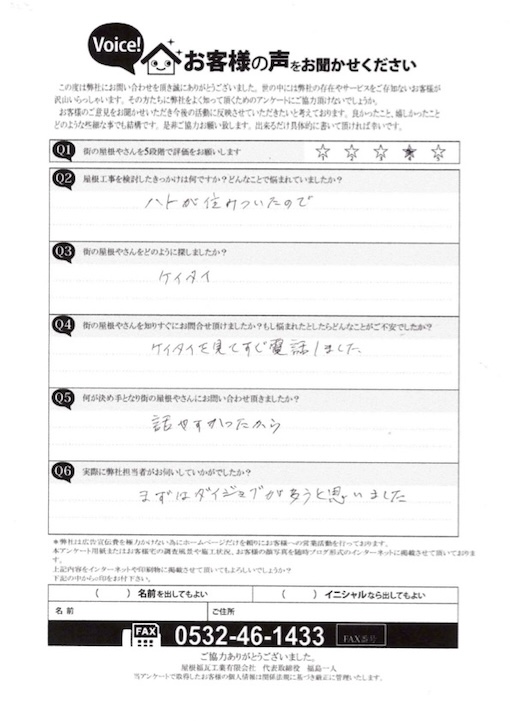 Voice!
お客様の声をお聞かせください
この度は弊社にお問い合わせを頂き誠にありがとうございました。世の中には弊社の存在やサービスをご存知ないお客様が
沢山いらっしゃいます。その方たちに弊社をよく知って頂くためのアンケートにご協力頂けないでしょうか。
お客様のご意見をお聞かせいただき今後の活動に反映させていただきたいと考えております。良かったこと、嬉しかったこと
どのような些細な事でも結構です。是非ご協力お願い致します。出来るだけ具体的に書いて頂ければ幸いです。
Q1 街の屋根やさんを5段階で評価をお願いします ☆ ☆ ☆ ★ ☆
Q2 屋根工事を検討したきっかけは何ですか?どんなことで悩まれていましたか?
ハトが住みついたので
Q3 街の屋根やさんをどのように探しましたか?
ケイタイ
Q4 街の屋根やさんを知りすぐにお問合せ頂けましたか?もし悩まれたとしたらどんなことがご不安でしたか?
ケイタイを見てすぐ電話しました
Q5 何が決め手となり街の屋根やさんにお問い合わせ頂きましたか?
話やすかったから
Q6 実際に弊社担当者がお伺いしていかがでしたか?
まずはダイジョブがあろうと思いました
*弊社は広告宣伝費を極力かけない為にホームページだけを頼りにお客様への営業活動を行っております。
本アンケート用紙またはお客様宅の調査風景や施工状況、お客様の顔写真を随時ブログ形式のインターネットに掲載させて頂いております。
上記内容をインターネットや印刷物に掲載させて頂いてもよろしいでしょうか?
下記の中から○印をお付け下さい。
( )名前を出してもよい ( )イニシャルなら出してもよい
名前 ご住所
FAX 0532-46-1433 FAX番号
ご協力ありがとうございました。
屋根福瓦工業有限会社 代表取締役 福島一人
当アンケートで取得したお客様の個人情報は関係法規に基づき厳正に管理いたします。